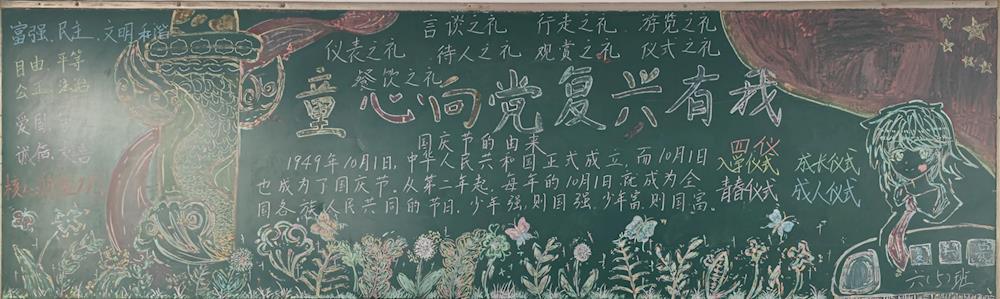 富强 民主 文明 和谐
自由 平等
公正 法治
爱国
诚信 友善
言谈之礼 行走之礼 游览之礼
仪表之礼 待人之礼 观赏之礼 仪式之礼
餐饮之礼
童心向党复兴有我
国庆节的由来
1949年10月1日,中华人民共和国正式成立,而10月1日
也成为了国庆节。从第二年起,每年的10月1日就成为全
国各族人民共同的节日。少年强,则国强,少年富,则国富。
四仪
入学仪式 成长仪式
青春仪式 成人仪式
六(5)班